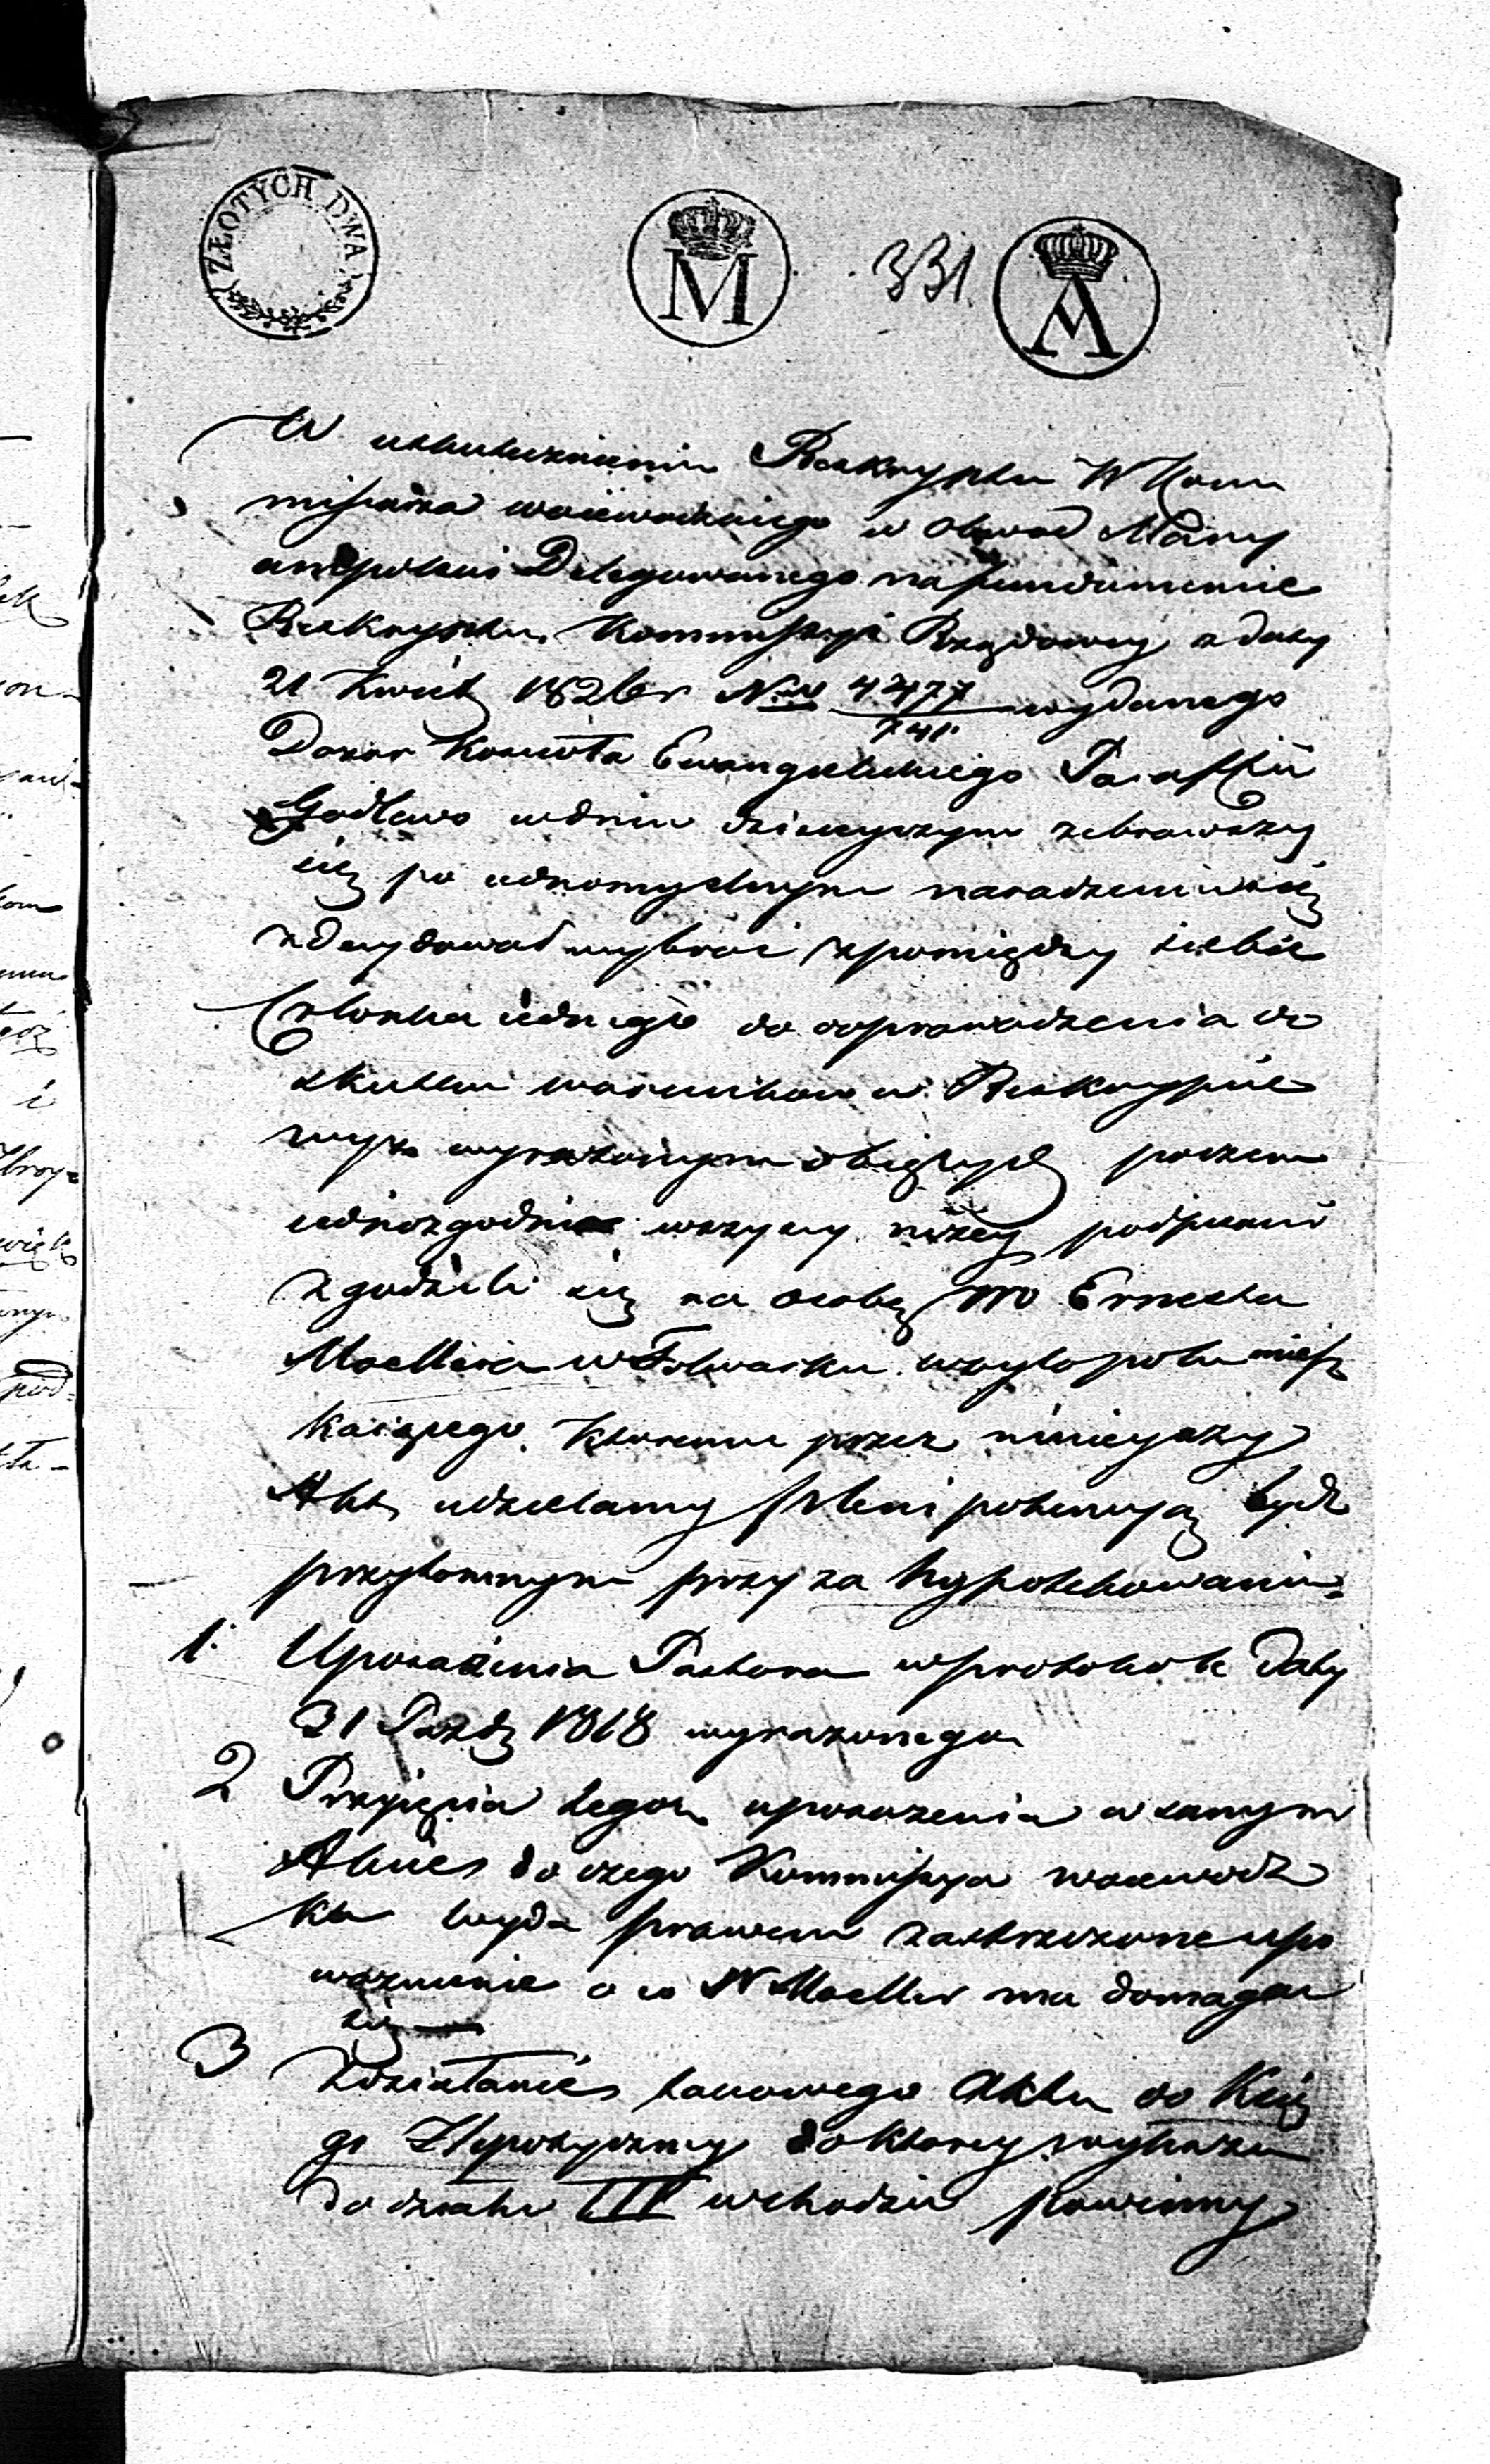 ZŁOTYCH DWA
M
331.
A
W uskutecznieniu Reskryptu W Kom
missarza woiewodzkiego w Obwod Mary
ampolski Delegowanego na fundamencie
Reskryptu Kommissyi Rządowey z daty
21 Kwiet 1826 r N 4477/741 wydanego
Dozor Koscioła Ewangelickiego Paraffii
Godlewo w dniu dzisieyszym zebrawszy
się po iednomyslnym naradzeniu się
zdecydował wybrać zpomiędzy siebie
Członka iednego do doprowadzenia do
skutku warunkow w Reskrypcie
wyż wyrazonym obiętych poczem
iednozgodnie wszyscy niżey podpisani
zgodzili się na osobę Ernesta
Moellera w Folwarku miesz
kaiącego. Ktoremu przez ninieyszy
Akt udzielamy plenipotencyą bydz
przytomnym przy za hypotekowaniu
1. Uposażenia Pastora w protokole Daty
31 Pazdz 1818 wyrazonego
2 Przyięcia tegoz uposazenia w samym
Akcie do czego Kommissya woiewodz
ka wyda prawem zastrzezone upo
waznienie o co W Moeller ma domagac
się —
3 Zdziałanie takowego Aktu do Xię
gi Hypotyczney do ktorey wykazu
do działu III wchodzić powinny